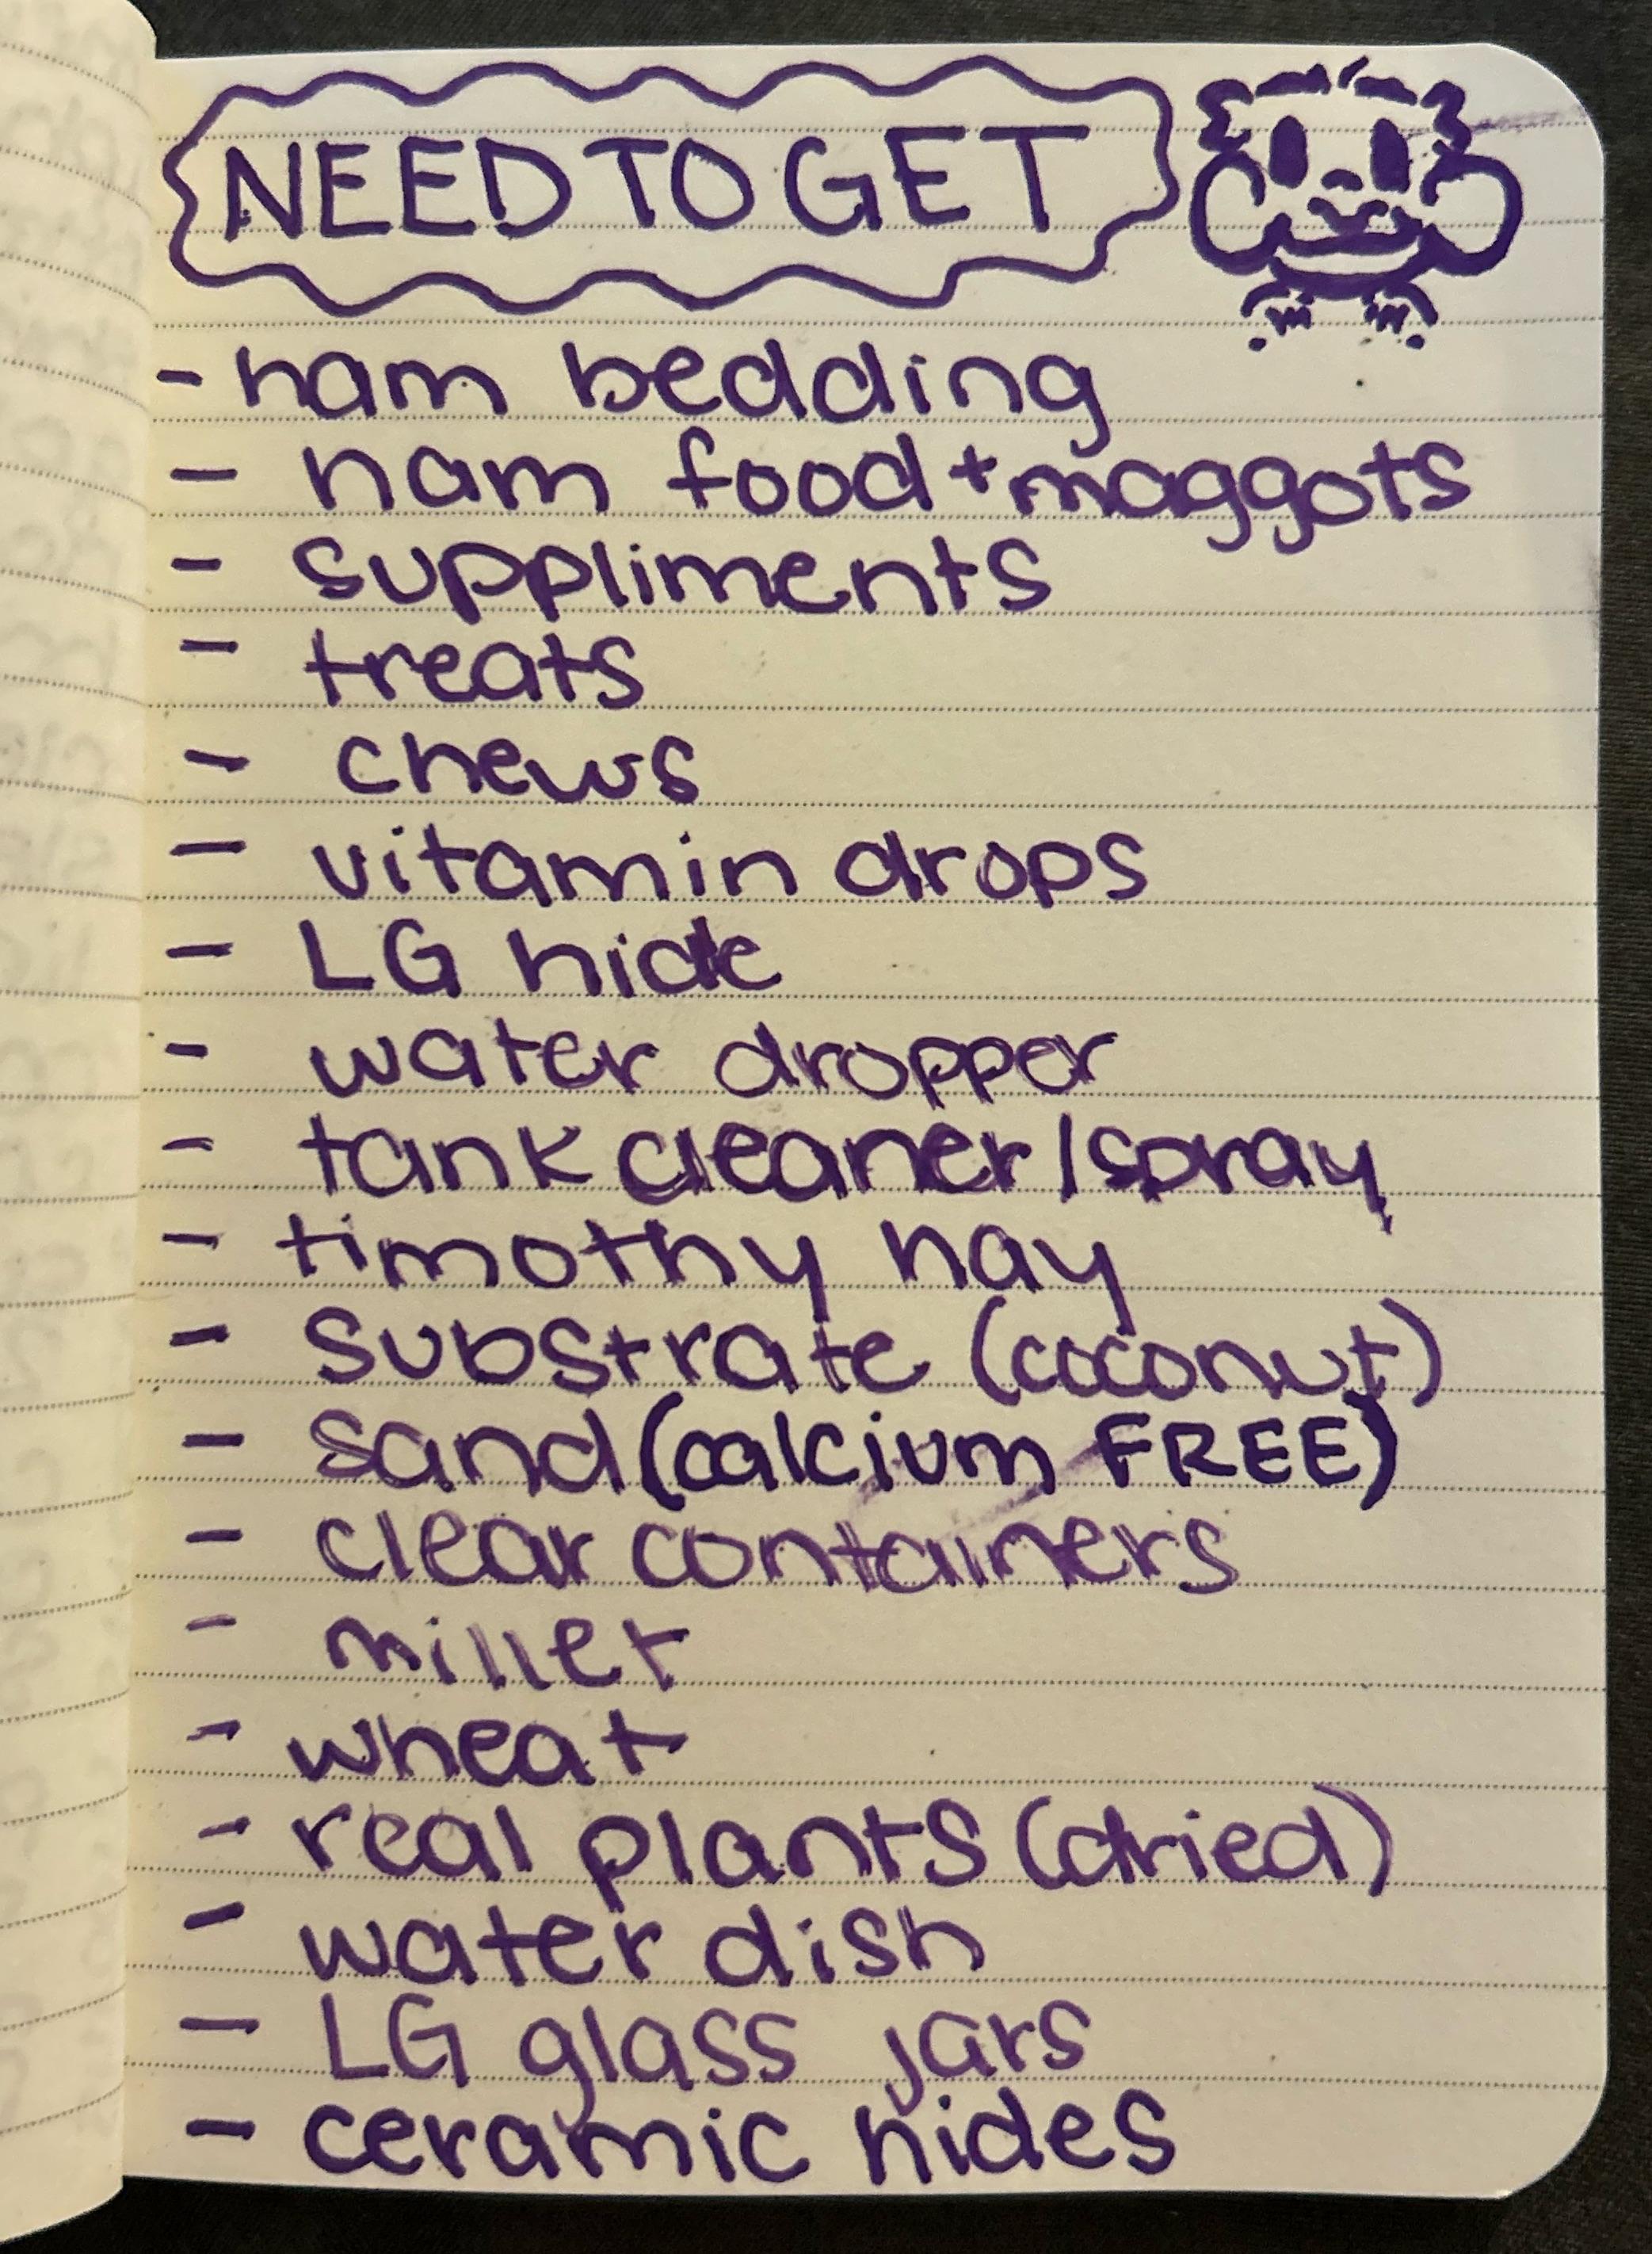 NEED TO GET
- ham bedding
- ham food + maggots
- suppliments
- treats
- chews
- vitamin drops
- LG hide
- water dropper
- tank cleaner/spray
- timothy hay
- substrate (coconut)
- sand (calcium FREE)
- clear containers
- millet
- wheat
- real plants (dried)
- water dish
- LG glass jars
- ceramic hides